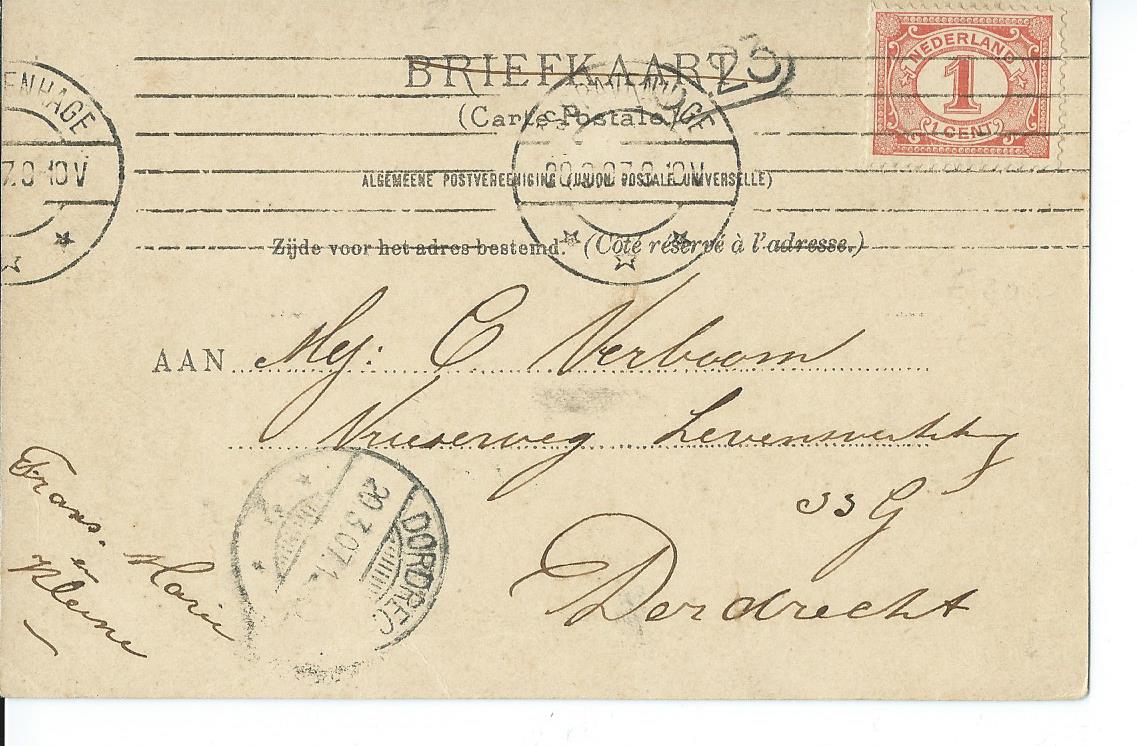 BRIEFKAART
(Carte Postale)
ALGEMEENE POSTVEREENIGING (UNION POSTALE UNIVERSELLE)
Zijde voor het adres bestemd. (Côté réservé à l'adresse.)
NEDERLAND
1
1 CENT
25
ENHAGE
7.8-10V
'S GRAVENHAGE
20.3.07.8-10V
AAN Mej: C Verboom
Vrieserweg Levensverzekering
33 G
Dordrecht
DORDREC
20.3.07.1
Frans. Marie
en
Kleine